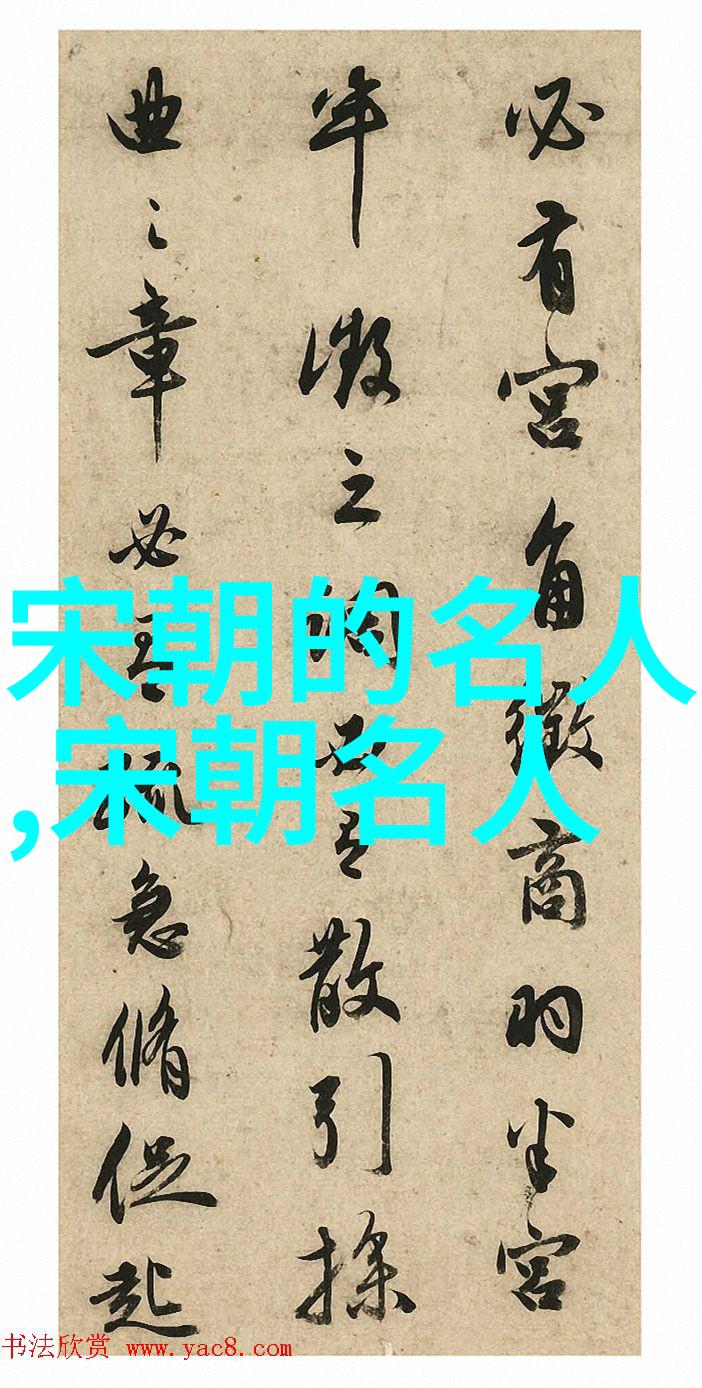 必有宫角徵商羽半宫
半徵之调必有散引操
曲之章必有缓急脩促起
宋朝的名人
,宋朝名人
书法欣赏 www.yac8.com